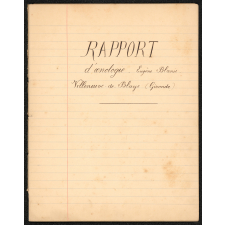 RAPPORT
d'œnologie - Eugène
Villeneuve de Blaye (Gironde)